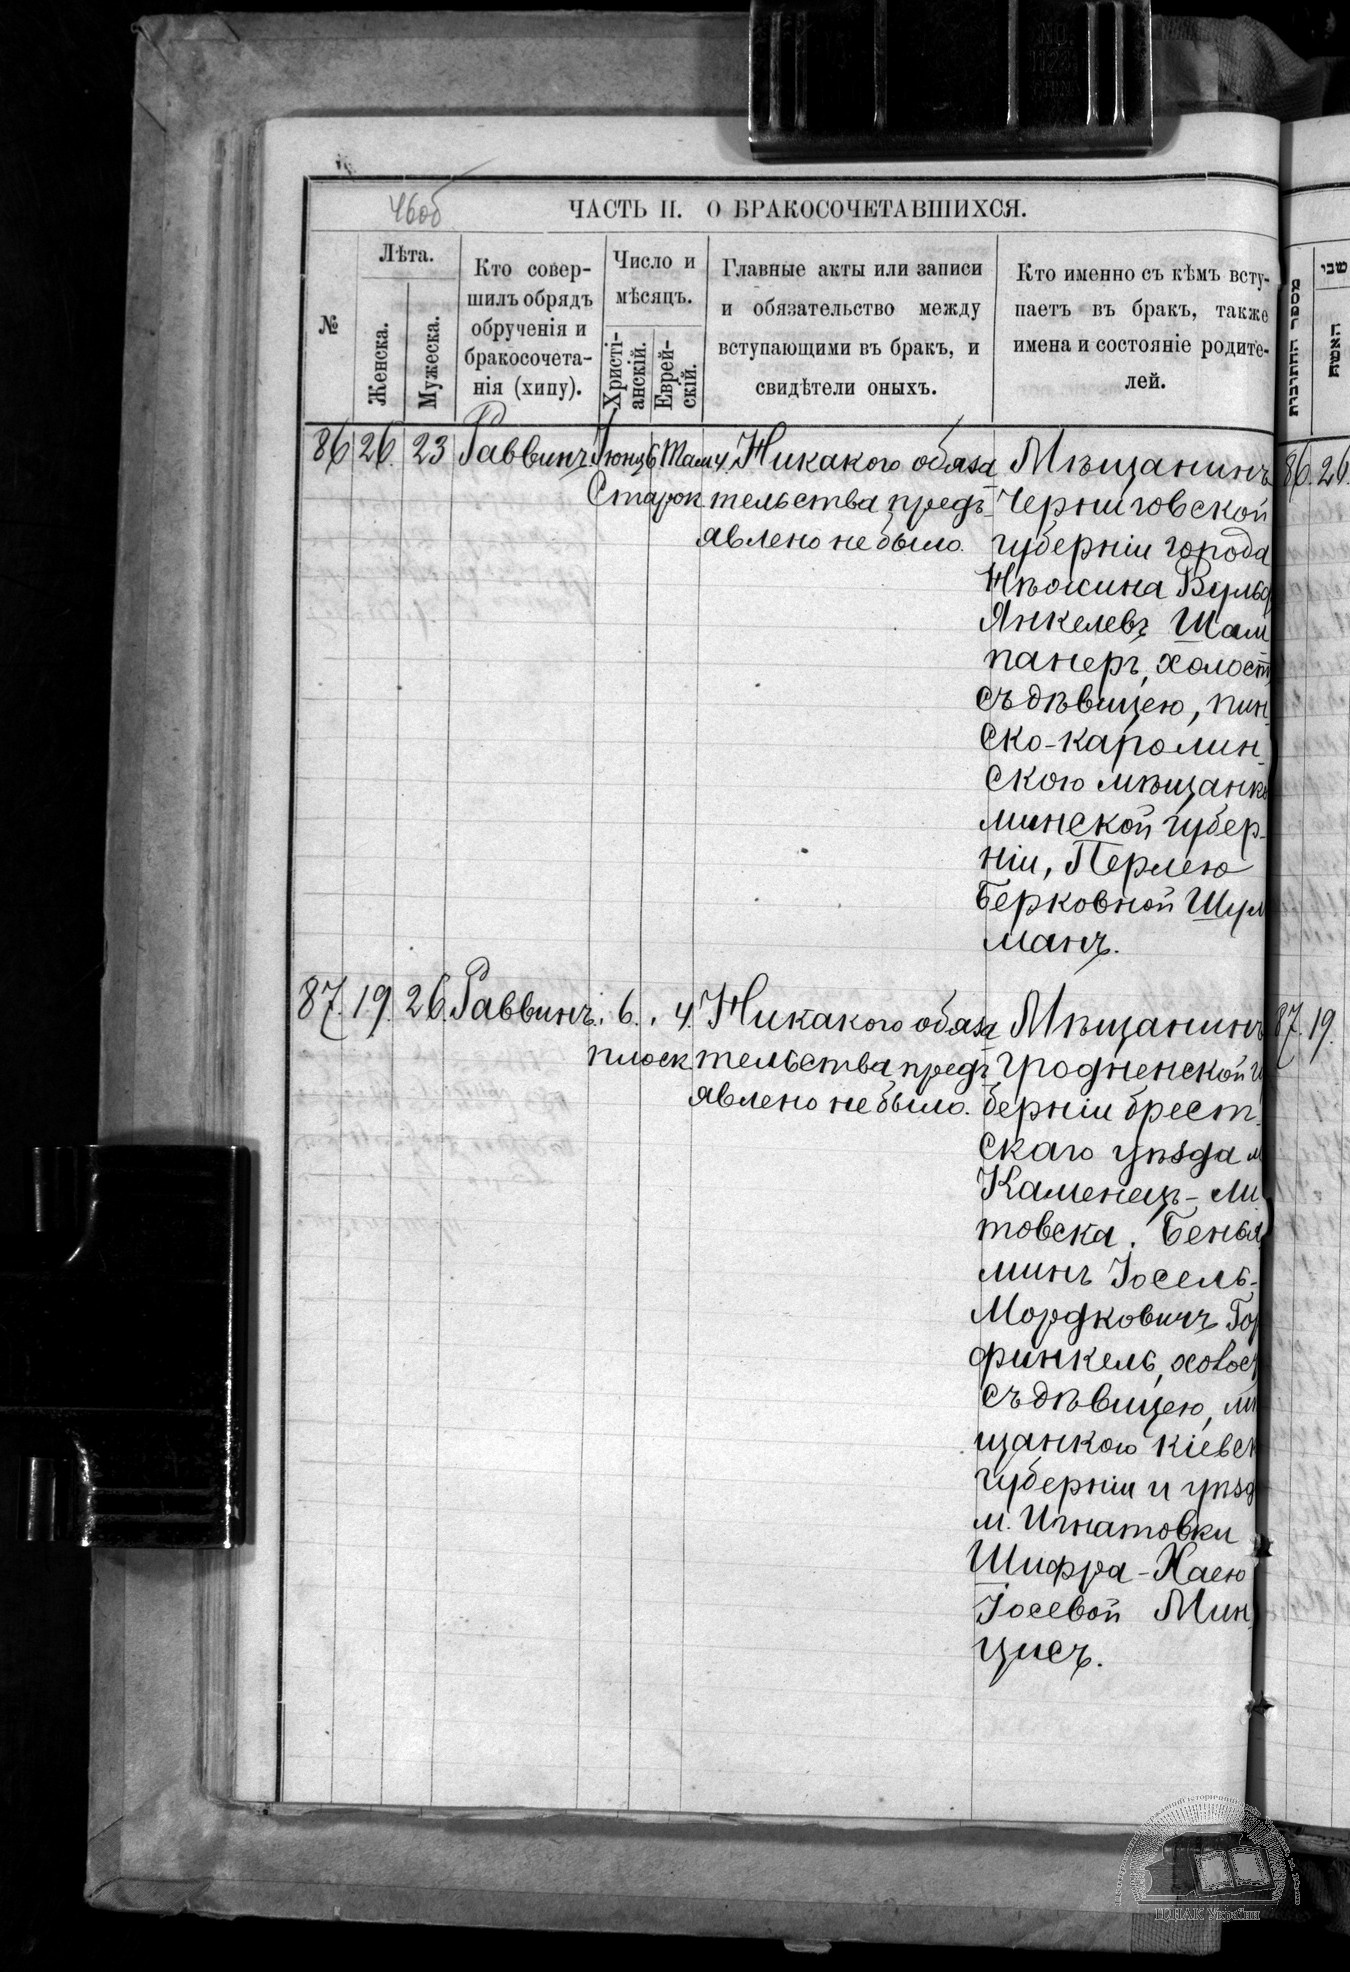 46об
ЧАСТЬ II. О БРАКОСОЧЕТАВШИХСЯ.
№
Лѣта.
Женска.
Мужеска.
Кто совер-
шилъ обрядъ
обрученія и
бракосочета-
нія (хипу).
Число и
мѣсяцъ.
Христі-
анскій.
Еврей-
скій.
Главные акты или записи
и обязательство между
вступающими въ бракъ, и
свидѣтели оныхъ.
Кто именно съ кѣмъ всту-
паетъ въ бракъ, также
имена и состояніе родите-
лей.
86 26. 23 Раввинъ. Іюнь 6 Там 4.
Старок
Никакого обяза
тельства предъ-
явлено не было.
Мѣщанинъ
Черниговской
губерніи города
Нѣжина Вульф
Янкелевъ Шам
панеръ, холост
съ дѣвицею, пин-
ско-каролин-
скою мѣщанко
минской губер-
ніи, Перлею
Берковной Шул
манъ.
87. 19. 26. Раввинъ. 6. 4.
плоск
Никакого обяза
тельства предъ-
явлено не было.
Мѣщанинъ
гродненской гу
берніи брест-
скаго уѣзда м
Каменец-Ли
товска. Бенья
минъ Іосель-
Мордковичъ Гор
финкель, холост
съ дѣвицею, мѣ
щанкою кіевск
губерніи и уѣзд
м. Игнатовки
Шифра-Хаею
Іосевой Мин
цисъ.
86. 26.
87. 19.
האשה
ЦДІАК України